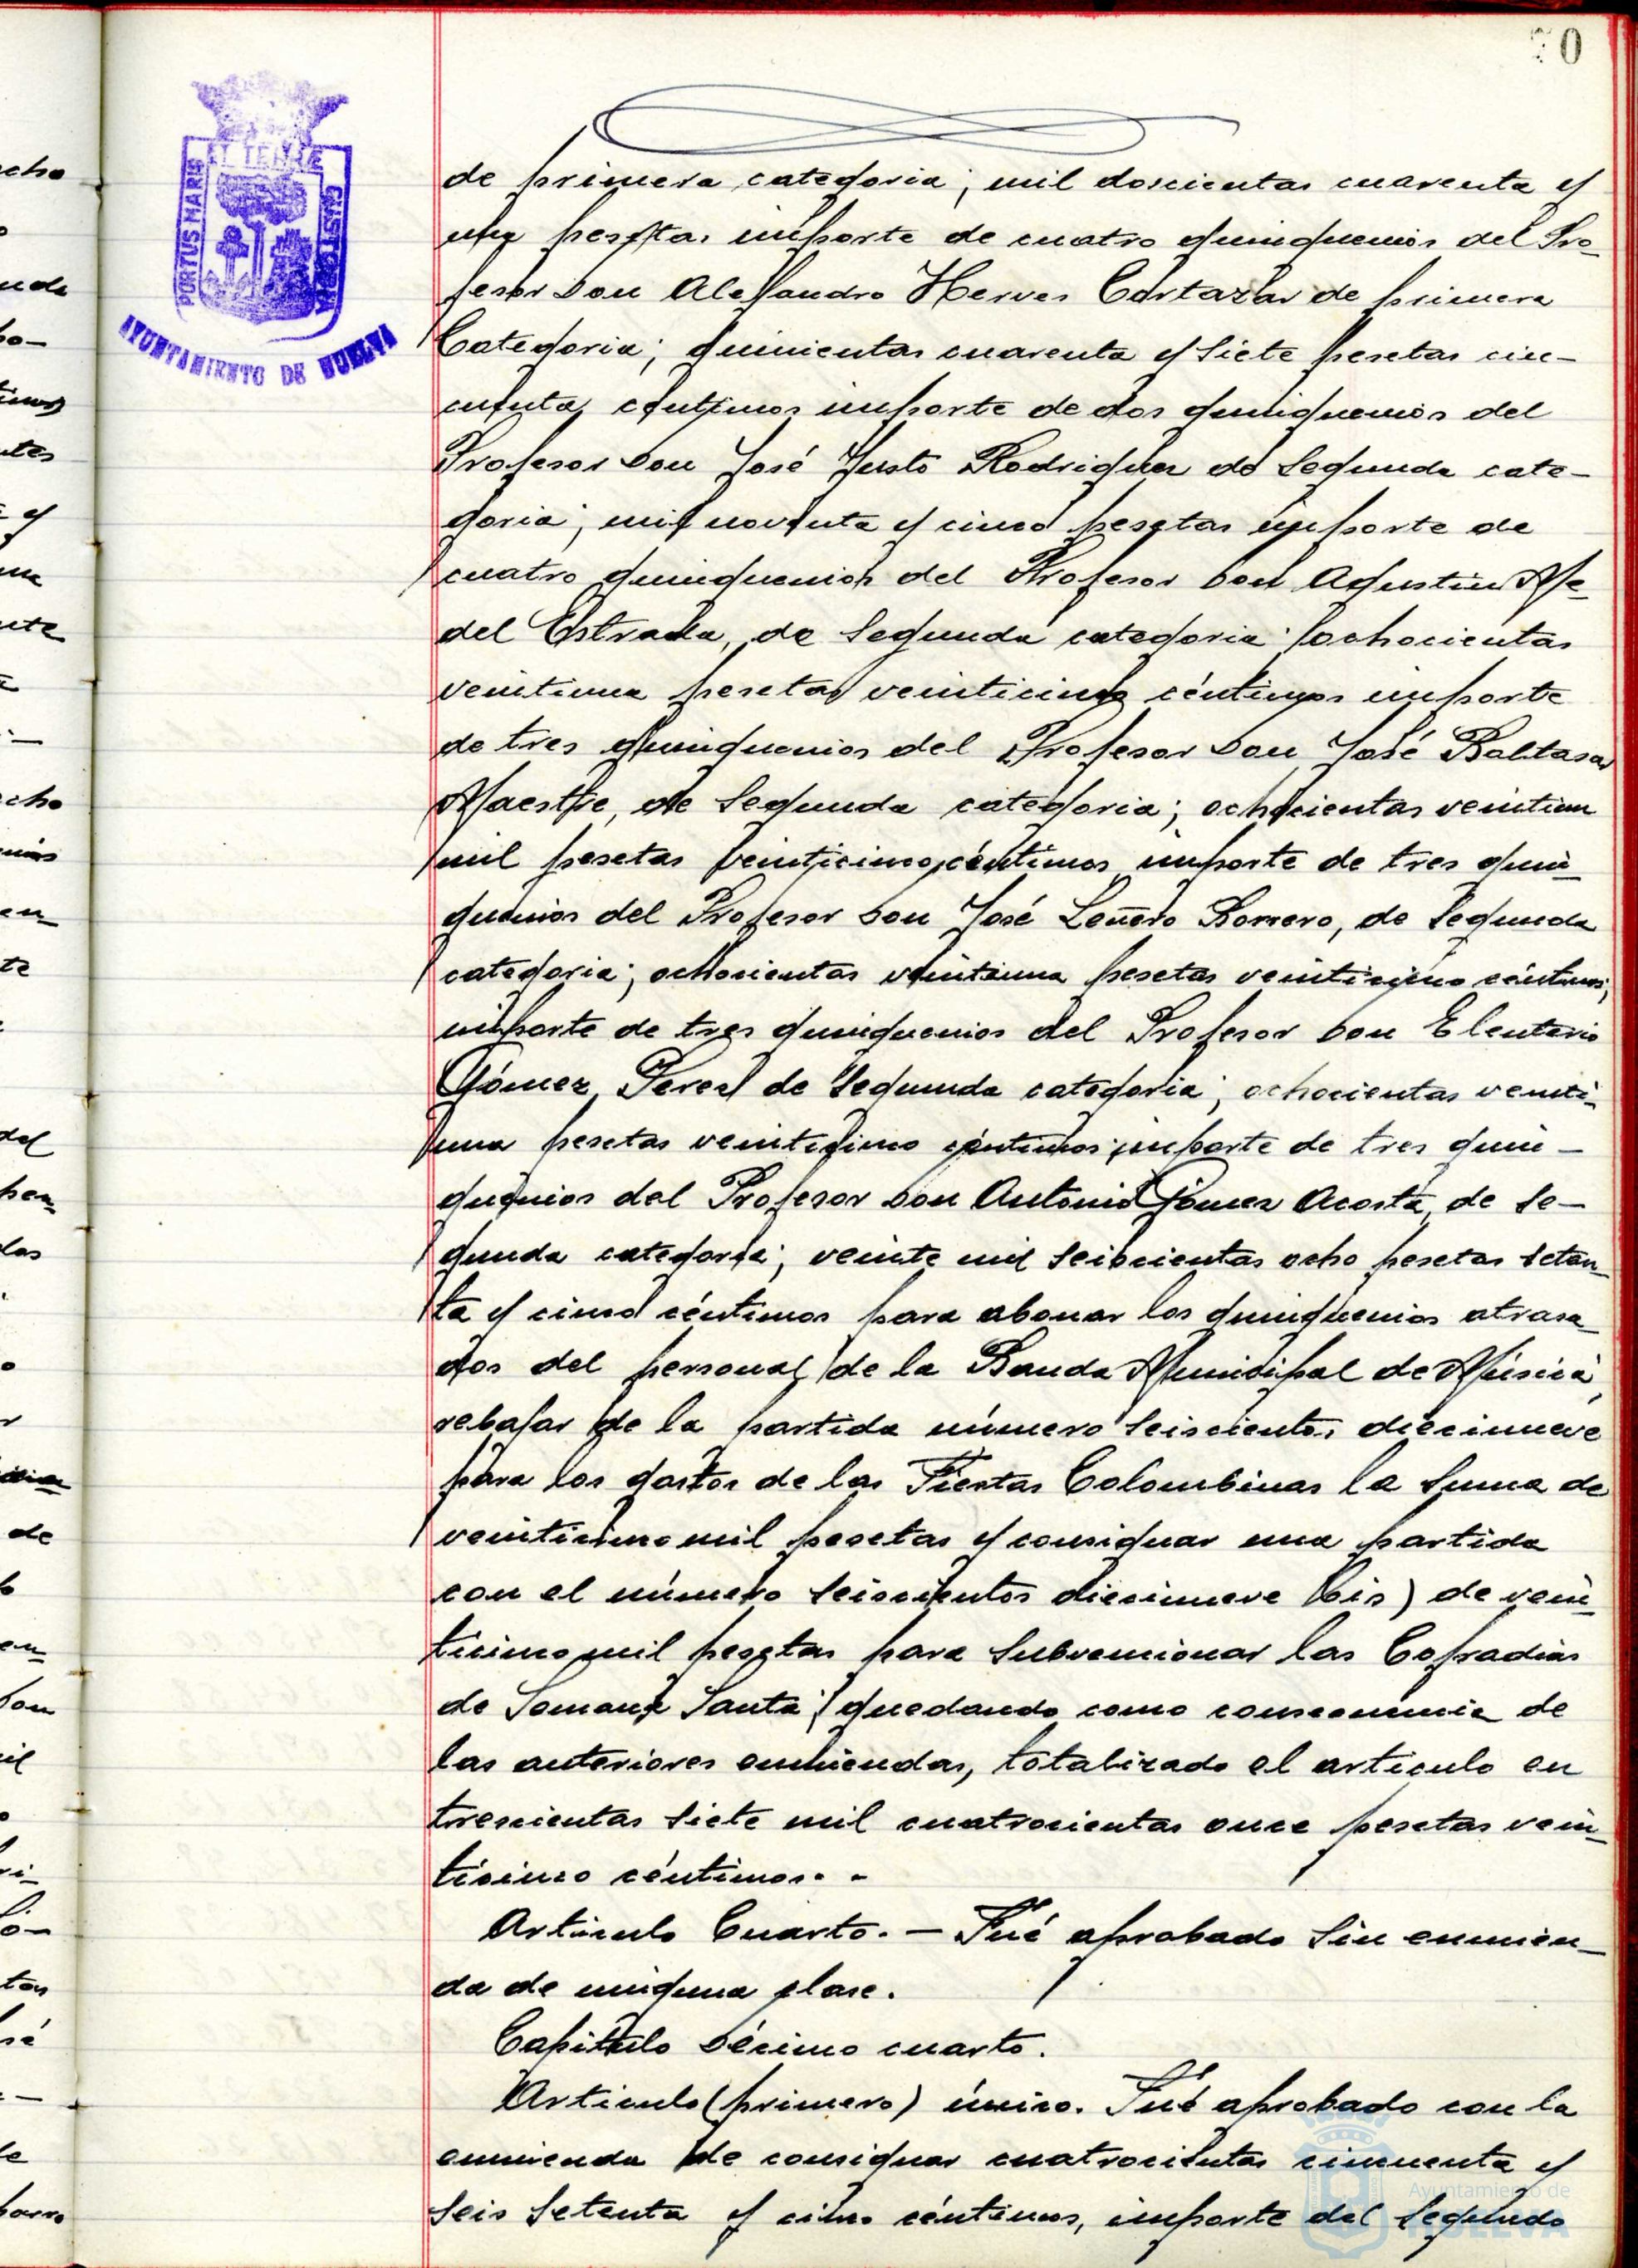 70
PORTUS MARIS ET TERRAE CUSTODIA
AYUNTAMIENTO DE HUELVA
de primera categoria; mil doscientas cuarenta y
una pesetas importe de cuatro quinquenios del Pro-
fesor Don Alejandro Herves Cortazar de primera
Categoria; quinientas cuarenta y siete pesetas cin-
cuenta céntimos importe de dos quinquenios del
Profesor Don José Justo Rodriguez de Segunda cate-
goria; mil noventa y cinco pesetas importe de
cuatro quinquenios del Profesor Don Agustin Me-
del Estrada, de Segunda categoria; ochocientas
veintiuna pesetas veinticinco céntimos importe
de tres quinquenios del Profesor Don José Baltasar
Maestre, de Segunda categoria; ochocientas veintiun
mil pesetas veinticinco céntimos importe de tres quin-
quenios del Profesor Don José Leñero Romero, de Segunda
categoria; ochocientas veintiuna pesetas veinticinco céntimos,
importe de tres quinquenios del Profesor Don Eleuterio
Gómez Perez de Segunda categoria; ochocientas veinti-
una pesetas veinticinco céntimos importe de tres quin-
quenios del Profesor Don Antonio Gómez Acosta, de Se-
gunda categoria; veinte mil seiscientas ocho pesetas seten-
ta y cinco céntimos para abonar los quinquenios atrasa-
dos del personal de la Banda Municipal de Música,
rebajar de la partida número seiscientos diecinueve
para los gastos de las Fiestas Colombinas la suma de
veinticinco mil pesetas y consignar una partida
con el número seiscientos diecinueve (bis) de vein-
ticinco mil pesetas para subvencionar las Cofradias
de Semana Santa; quedando como consecuencia de
las anteriores enmiendas, totalizado el articulo en
trescientas siete mil cuatrocientas once pesetas vein-
ticinco céntimos. -
Articulo Cuarto. - Fué aprobado sin enmien-
da de ninguna clase.
Capitulo Décimo cuarto.
Articulo (primero) único. Fué aprobado con la
enmienda de consignar cuatrocientas cincuenta y
seis setenta y cinco céntimos, importe del Segundo
Ayuntamiento de
HUELVA